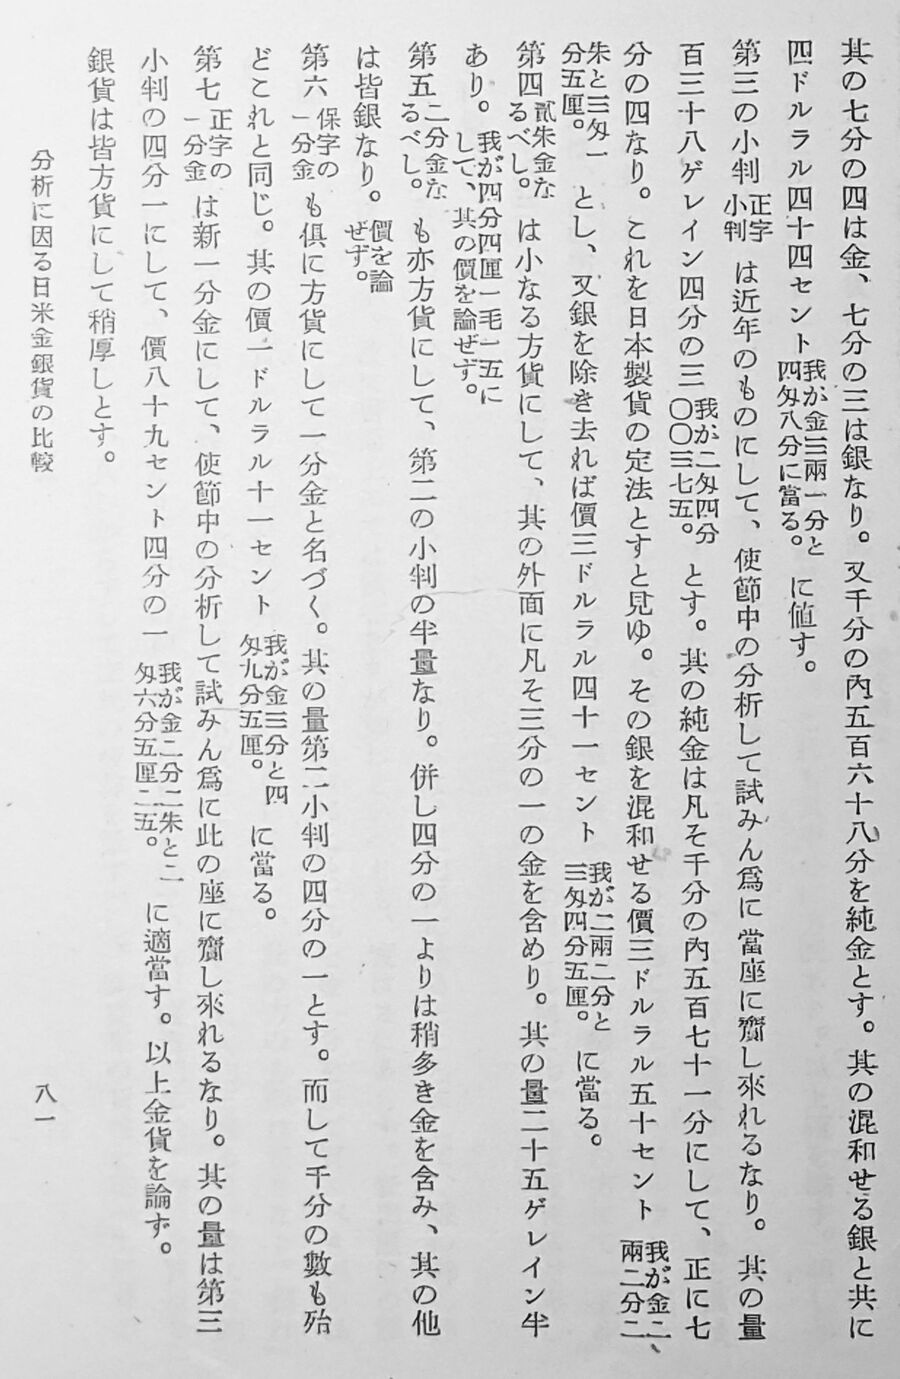 其の七分の四は金、七分の三は銀なり。又千分の內五百六十八分を純金とす。其の混和せる銀と共に
四ドルラル四十四セント我が金三兩一分と四匁八分に當る。に値す。
第三の小判正字小判は近年のものにして、使節中の分析して試みん爲に當座に齎し來れるなり。其の量
百三十八ゲレイン四分の三我が二匁四分〇〇三七五。とす。其の純金は凡そ千分の內五百七十一分にして、正に七
分の四なり。これを日本製貨の定法とすと見ゆ。その銀を混和せる價三ドルラル五十セント我が金二兩二分二、
朱と三匁一分五厘。とし、又銀を除き去れば價三ドルラル四十一セント我が二兩二分と三匁四分五厘。に當る。
第四貳朱金なるべし。は小なる方貨にして、其の外面に凡そ三分の一の金を含めり。其の量二十五ゲレイン半
あり。我が四分四厘一毛一五にして、其の價を論ぜず。
第五二分金なるべし。も亦方貨にして、第二の小判の半量なり。併し四分の一よりは稍多き金を含み、其の他
は皆銀なり。價を論ぜず。
第六保字の一分金も俱に方貨にして一分金と名づく。其の量第二小判の四分の一とす。而して千分の數も殆
どこれと同じ。其の價一ドルラル十一セント我が金三分と四匁九分五厘。に當る。
第七正字の一分金は新一分金にして、使節中の分析して試みん爲に此の座に齎し來れるなり。其の量は第三
小判の四分一にして、價八十九セント四分の一我が金二分二朱と二匁六分五厘二五。に適當す。以上金貨を論ず。
銀貨は皆方貨にして稍厚しとす。
分析に因る日米金銀貨の比較
八一